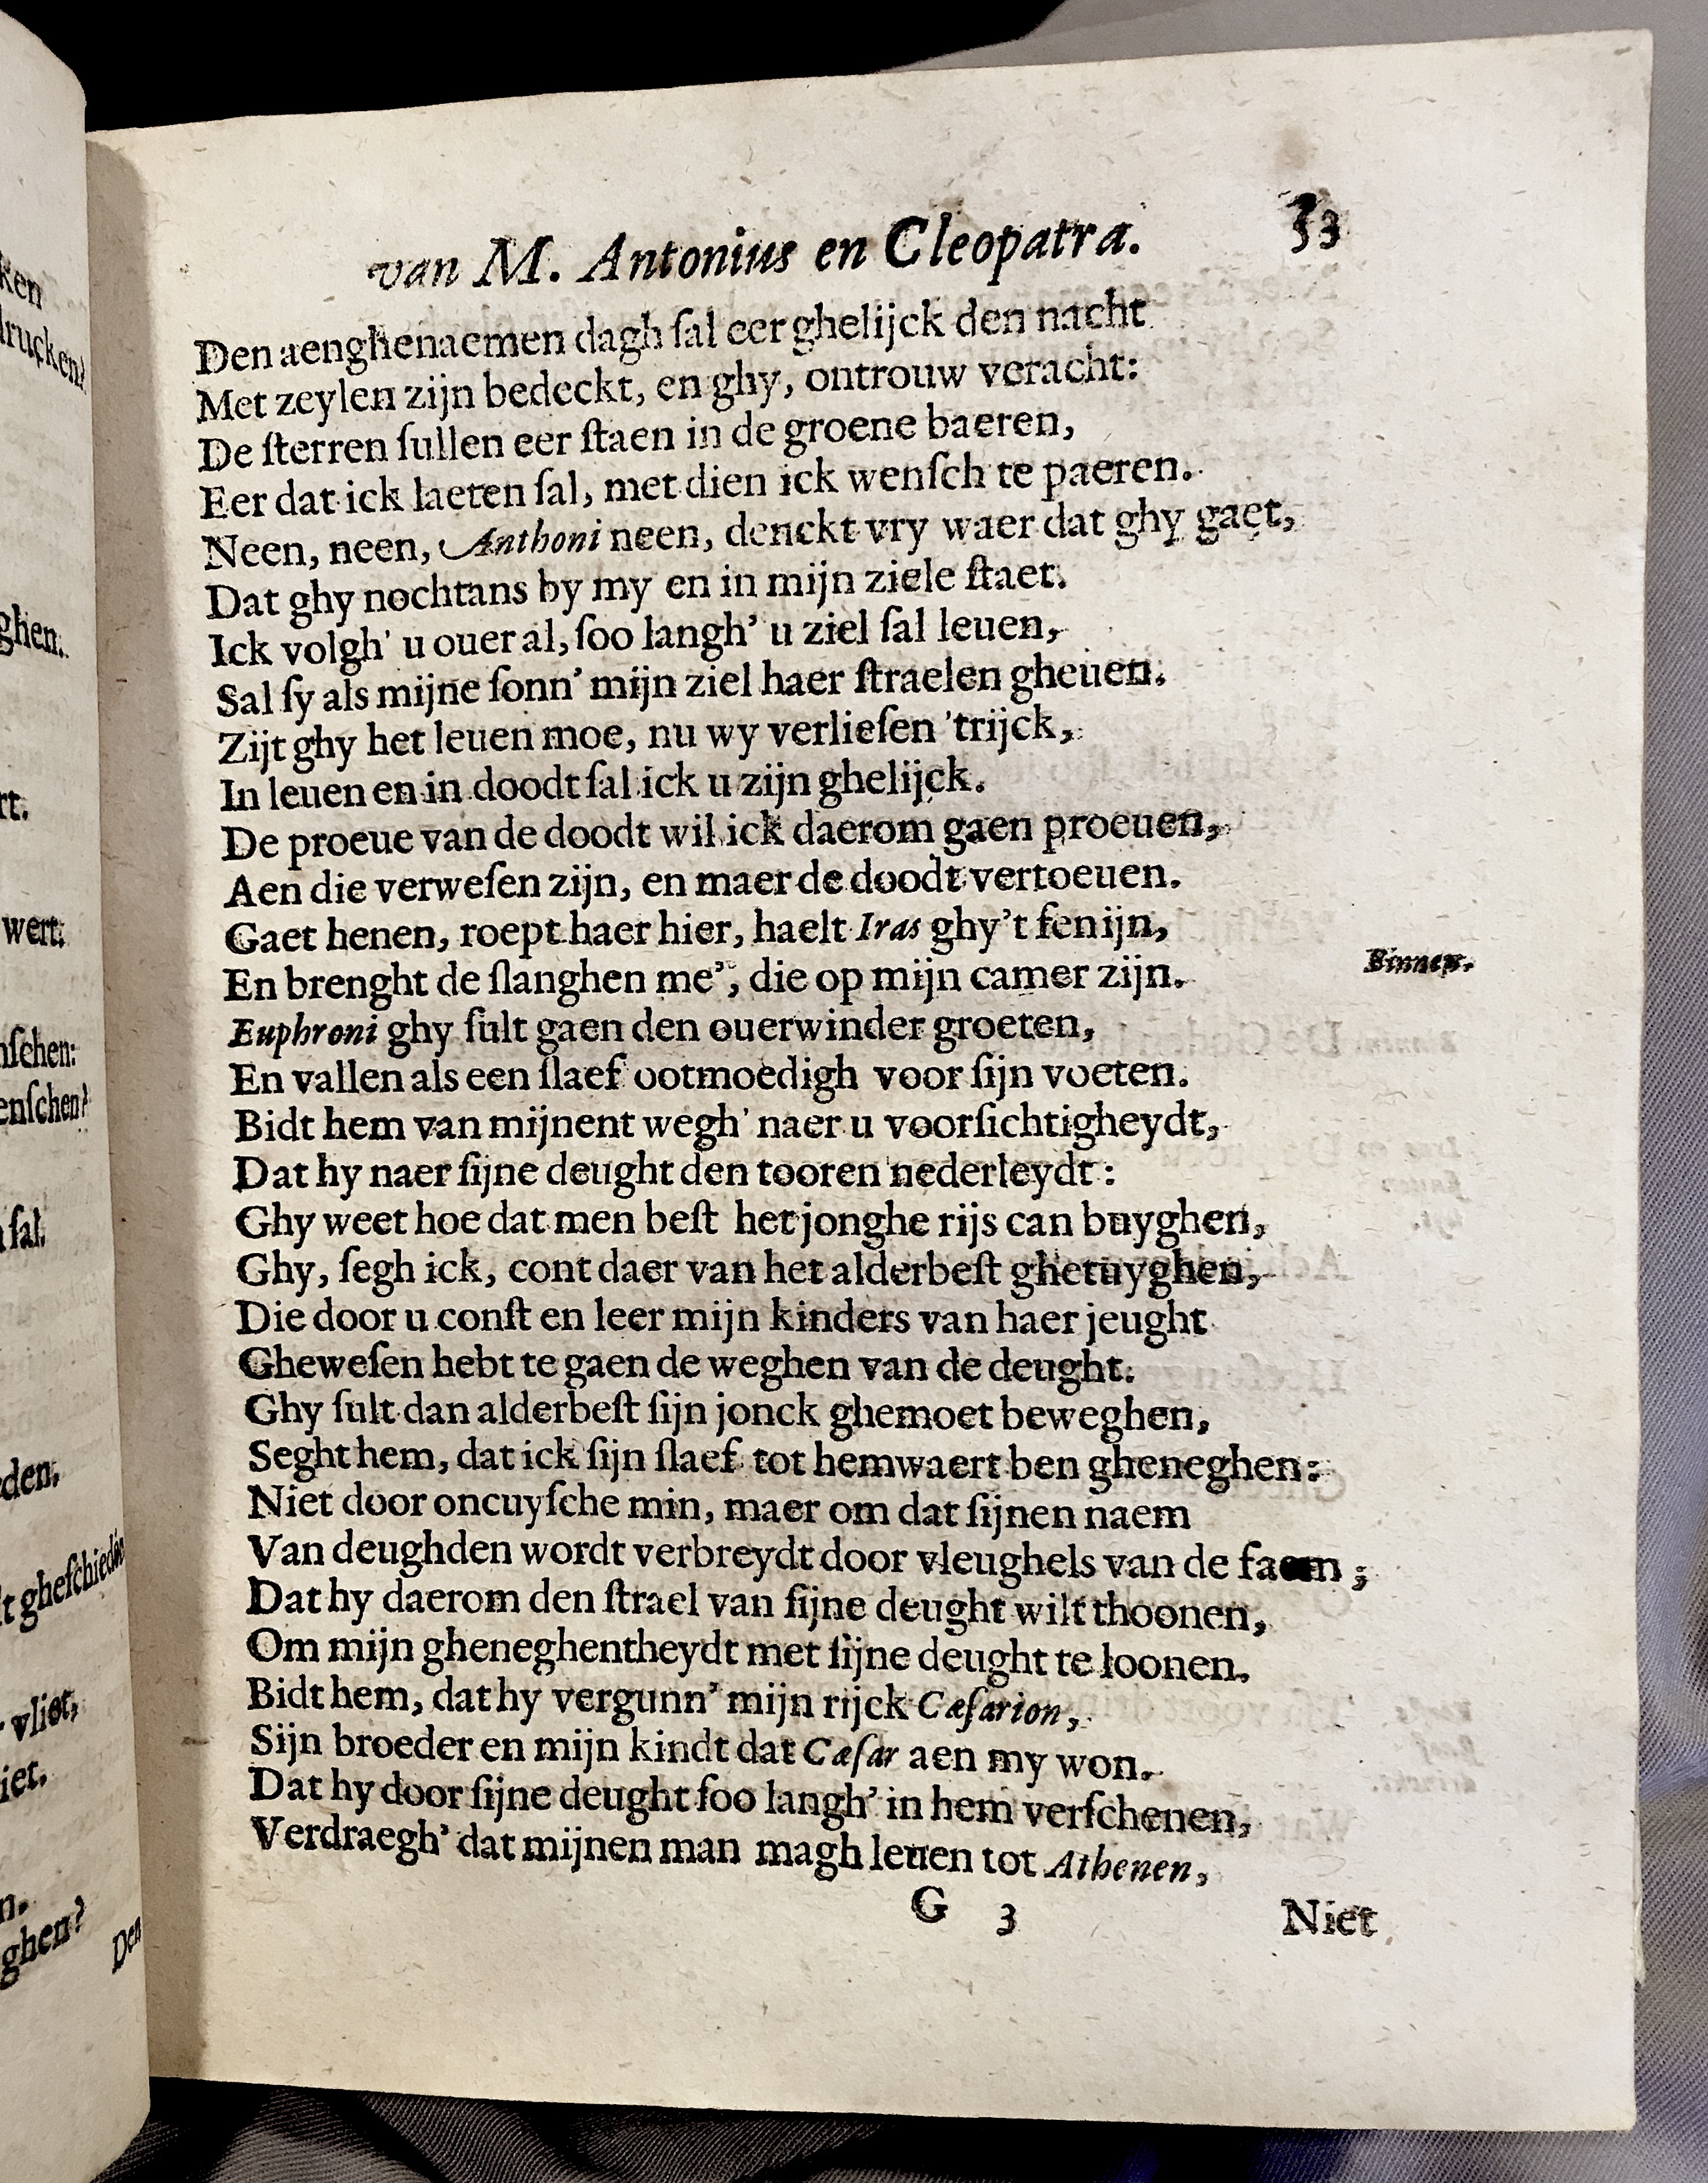 van M. Antonius en Cleopatra. 53
Den aenghenaemen dagh ſal eer ghelijck den nacht
Met zeylen zijn bedeckt, en ghy, ontrouw veracht:
De ſterren ſullen eer ſtaen in de groene baeren,
Eer dat ick laeten ſal, met dien ick wenſch te paeren.
Neen, neen, Anthoni neen, denckt vry waer dat ghy gaet,
Dat ghy nochtans by my en in mijn ziele ſtaet.
Ick volgh' u ouer al, ſoo langh' u ziel ſal leuen,
Sal ſy als mijne ſonn' mijn ziel haer ſtraelen gheuen.
Zijt ghy het leuen moe, nu wy verlieſen 'trijck,
In leuen en in doodt ſal ick u zijn ghelijck.
De proeue van de doodt wil ick daerom gaen proeuen,
Aen die verweſen zijn, en maer de doodt vertoeuen.
Gaet henen, roept haer hier, haelt Iras ghy't fenijn,
En brenght de ſlanghen me', die op mijn camer zijn. Binnen.
Euphroni ghy ſult gaen den ouerwinder groeten,
En vallen als een ſlaef ootmoedigh voor ſijn voeten.
Bidt hem van mijnent wegh' naer u voorſichtigheydt,
Dat hy naer ſijne deught den tooren nederleydt:
Ghy weet hoe dat men beſt het jonghe rijs can buyghen,
Ghy, ſegh ick, cont daer van het alderbeſt ghetuyghen,
Die door u conſt en leer mijn kinders van haer jeught
Gheweſen hebt te gaen de weghen van de deught.
Ghy ſult dan alderbeſt ſijn jonck ghemoet beweghen,
Seght hem, dat ick ſijn ſlaef tot hemwaert ben gheneghen:
Niet door oncuyſche min, maer om dat ſijnen naem
Van deughden wordt verbreydt door vleughels van de faem;
Dat hy daerom den ſtrael van ſijne deught wilt thoonen,
Om mijn gheneghentheydt met ſijne deught te loonen.
Bidt hem, dat hy vergunn' mijn rijck Cæſarion,
Sijn broeder en mijn kindt dat Cæſar aen my won.
Dat hy door ſijne deught ſoo langh' in hem verſchenen,
Verdraegh' dat mijnen man magh leuen tot Athenen,
G 3 Niet